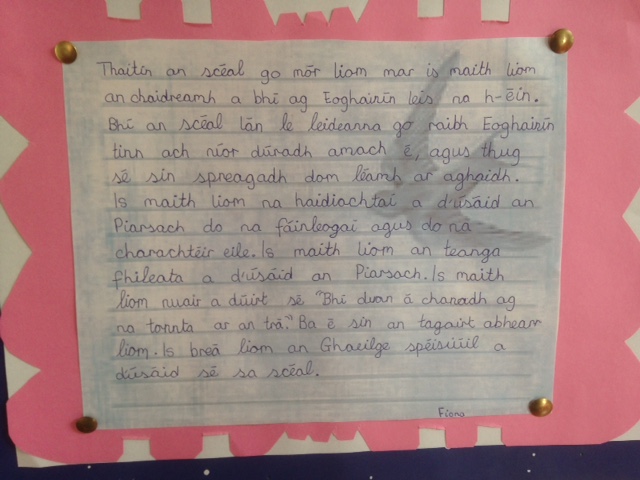 Thaitin an scéal go mór liom mar is maith liom
an chaidreamh a bhí ag Eoghainín leis na h-éin.
Bhí an scéal lán le leideanna go raibh Eoghainín
tinn ach níor dúradh amach é, agus thug
sé sin spreagadh dom léamh ar aghaidh.
Is maith liom na haidiachtaí a d'úsáid an
Piarsach do na fáinleogaí agus do na
charachtéir eile. Is maith liom an teanga
fhileata a d'úsáid an Piarsach. Is maith
liom nuair a dúirt sé "Bhí duan á chanadh ag
na tonnta ar an trá." Ba é sin an tagairt abhearr
liom. Is breá liom an Ghaeilge spéisiúil a
d'úsáid sé sa scéal.
Fiona